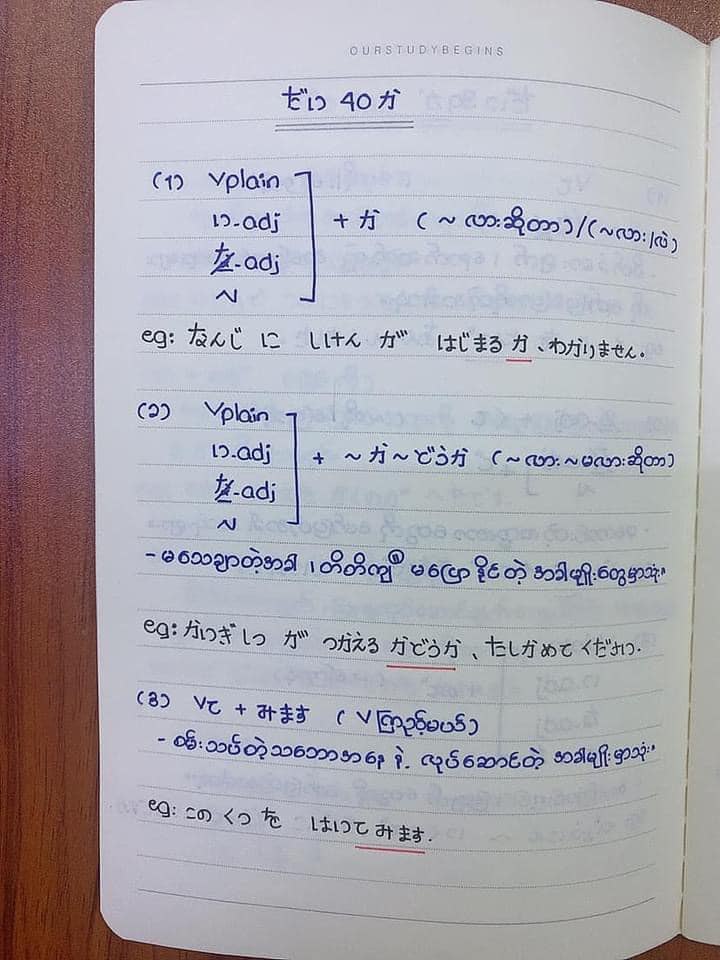 OURSTUDYBEGINS
だい 40 か
(1) Vplain
い-adj
な-adj
N
+ か ( ~ လားဆိုတာ)/(~လား/လဲ)
eg: なんじ に しけん が はじまる か、わかりません。
(၁) Vplain
い-adj
な-adj
N
+ ~ か ~ どうか ( ~ လား ~ မလားဆိုတာ)
- မသေချာတဲ့အခါ ၊ တိတိကျကျ မပြော နိုင်တဲ့ အခါမျိုးတွေမှာသုံး။
eg: かいぎしつ が つかえる かどうか、たしかめて ください.
(3) Vて + みます ( V ကြည့်မယ်)
- စမ်းသပ်တဲ့သဘောအနေ နဲ့ လုပ်ဆောင်တဲ့ အခါမျိုးမှာသုံး။
eg: この くつ を はいて みます.